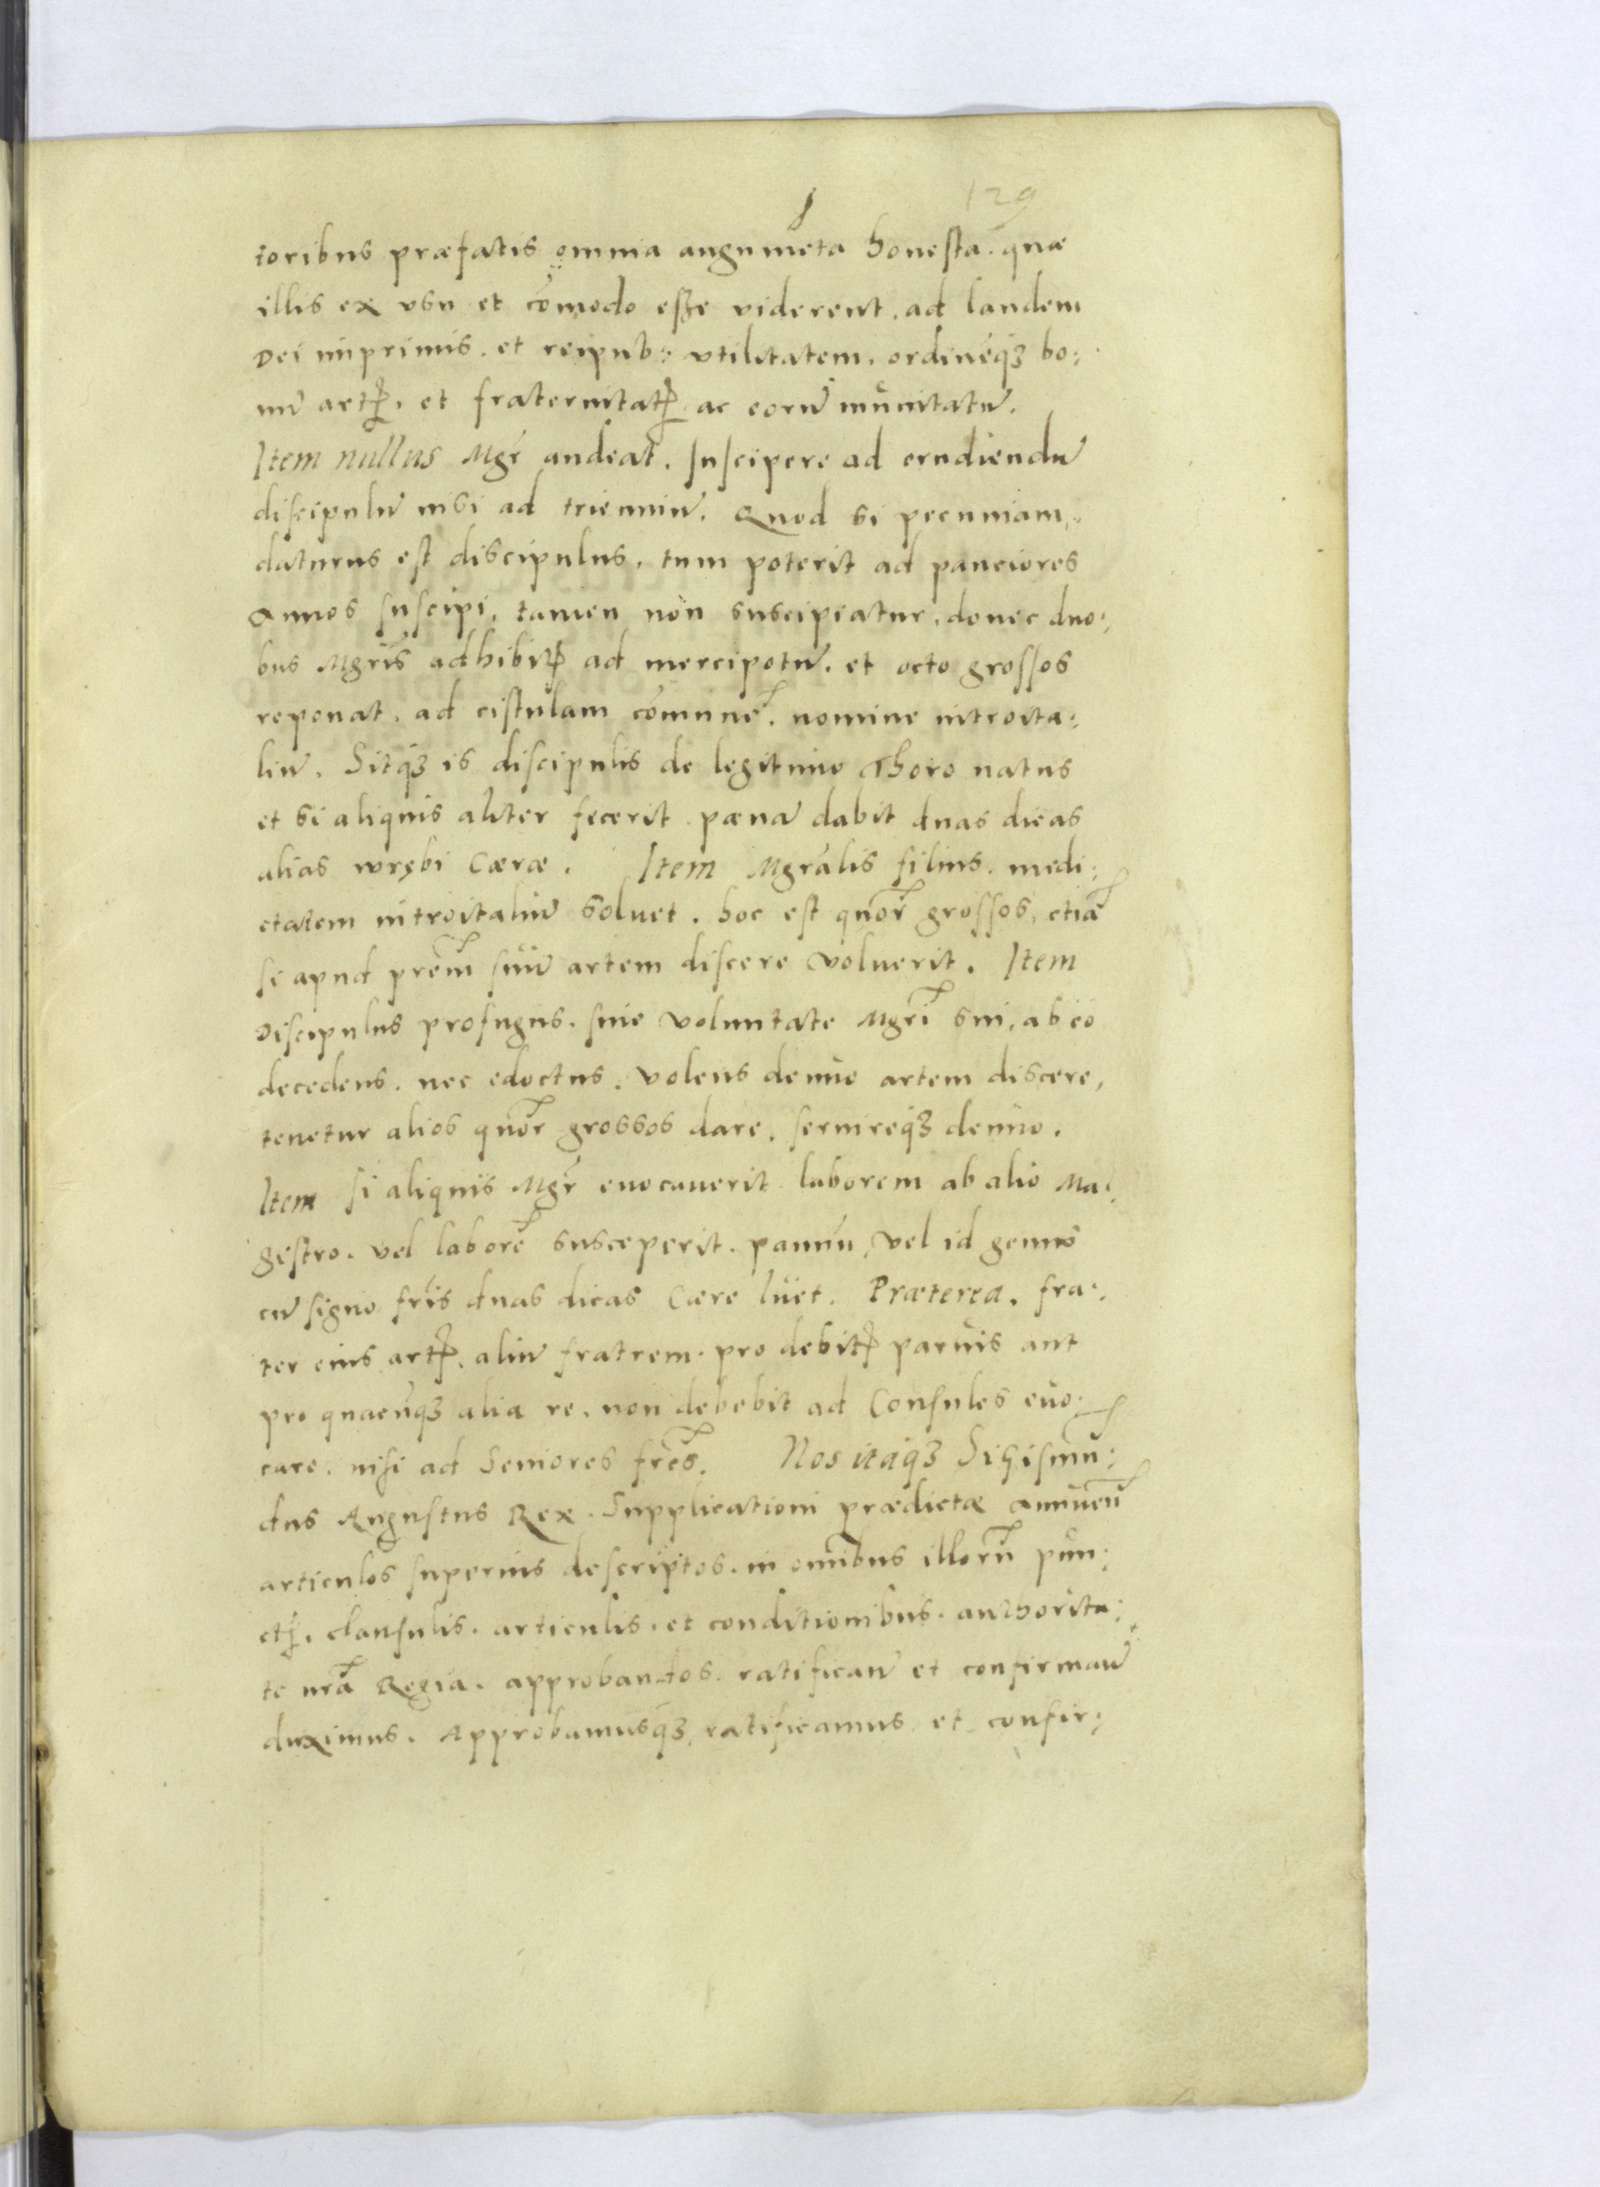 129
toribus præfatis omnia augumēta honesta. quæ
illis ex vsu et cōmodo esse viderent. ad laudem
Dei inprimis. et reipub: vtilitatem. ordinéqꝫ bo:
nū artꝭ. et fraternitatꝭ ac eorū mūnitatū.
Item nullus Mgr̄ audeat. suscipere ad erudiendū
discipulū nisi ad trienniū. Quod si pecuniam
daturus est discipulus. tum poterit ad pauciores
Annos suscipi. tamen non suscipiatur. donec duo:
bus Mgrīs adhibitꝭ ad mercipotū. et octo grossos
reponat. ad cistulam cōmunē. nomine introita:
liū. Sitqꝫ is discipulis de legitimo Thoro natus
et si aliquis aliter fecerit pænā dabit duas dicas
alias wrębi Cæræ. Item Mgrālis filius. medi:
etatem introitaliū soluet. hoc est quōr grossos, etiā
si apud prēm suū artem discere voluerit. Item
Discipulus profugus. sine voluntate Mgrī sui, ab eo
decedens. nec edoctus. volens denuo artem discere,
tenetur alios quōr grossos dare. seruireqꝫ denuo.
Item si aliquis Mgr̄ euocauerit laborem ab alio Ma:
gestro. vel laborē susceperit. pannū, vel id genus
cū signo frīs duas dicas Cære luet. Præterea. fra:
ter eius artꝭ. aliū fratrem. pro debitꝭ paruis aut
pro quacūqꝫ alia re. non debebit ad Consules euo:
care. nisi ad Seniores frēs. Nos itaqꝫ Sigismū:
dus Augustus Rex. Supplicationi prædictæ annuen̄
articulos superius descriptos. in omībus illorū pun:
ctꝭ. clausulis. articulis. et conditionibus. authorita:
te nrā Regia. approbandos. ratifican̄ et confirman̄
duximus. Approbamusqꝫ, ratificamus et confir: